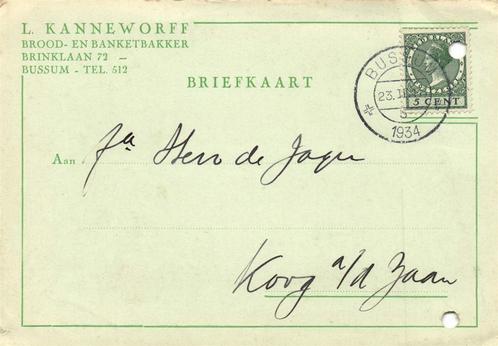 L. KANNEWORFF
BROOD- EN BANKETBAKKER
BRINKLAAN 72 —
BUSSUM - TEL. 512
BRIEFKAART
BUSSUM
23.II
5
1934
5 CENT
Aan fa Herm de Jager
Koog a/d Zaan